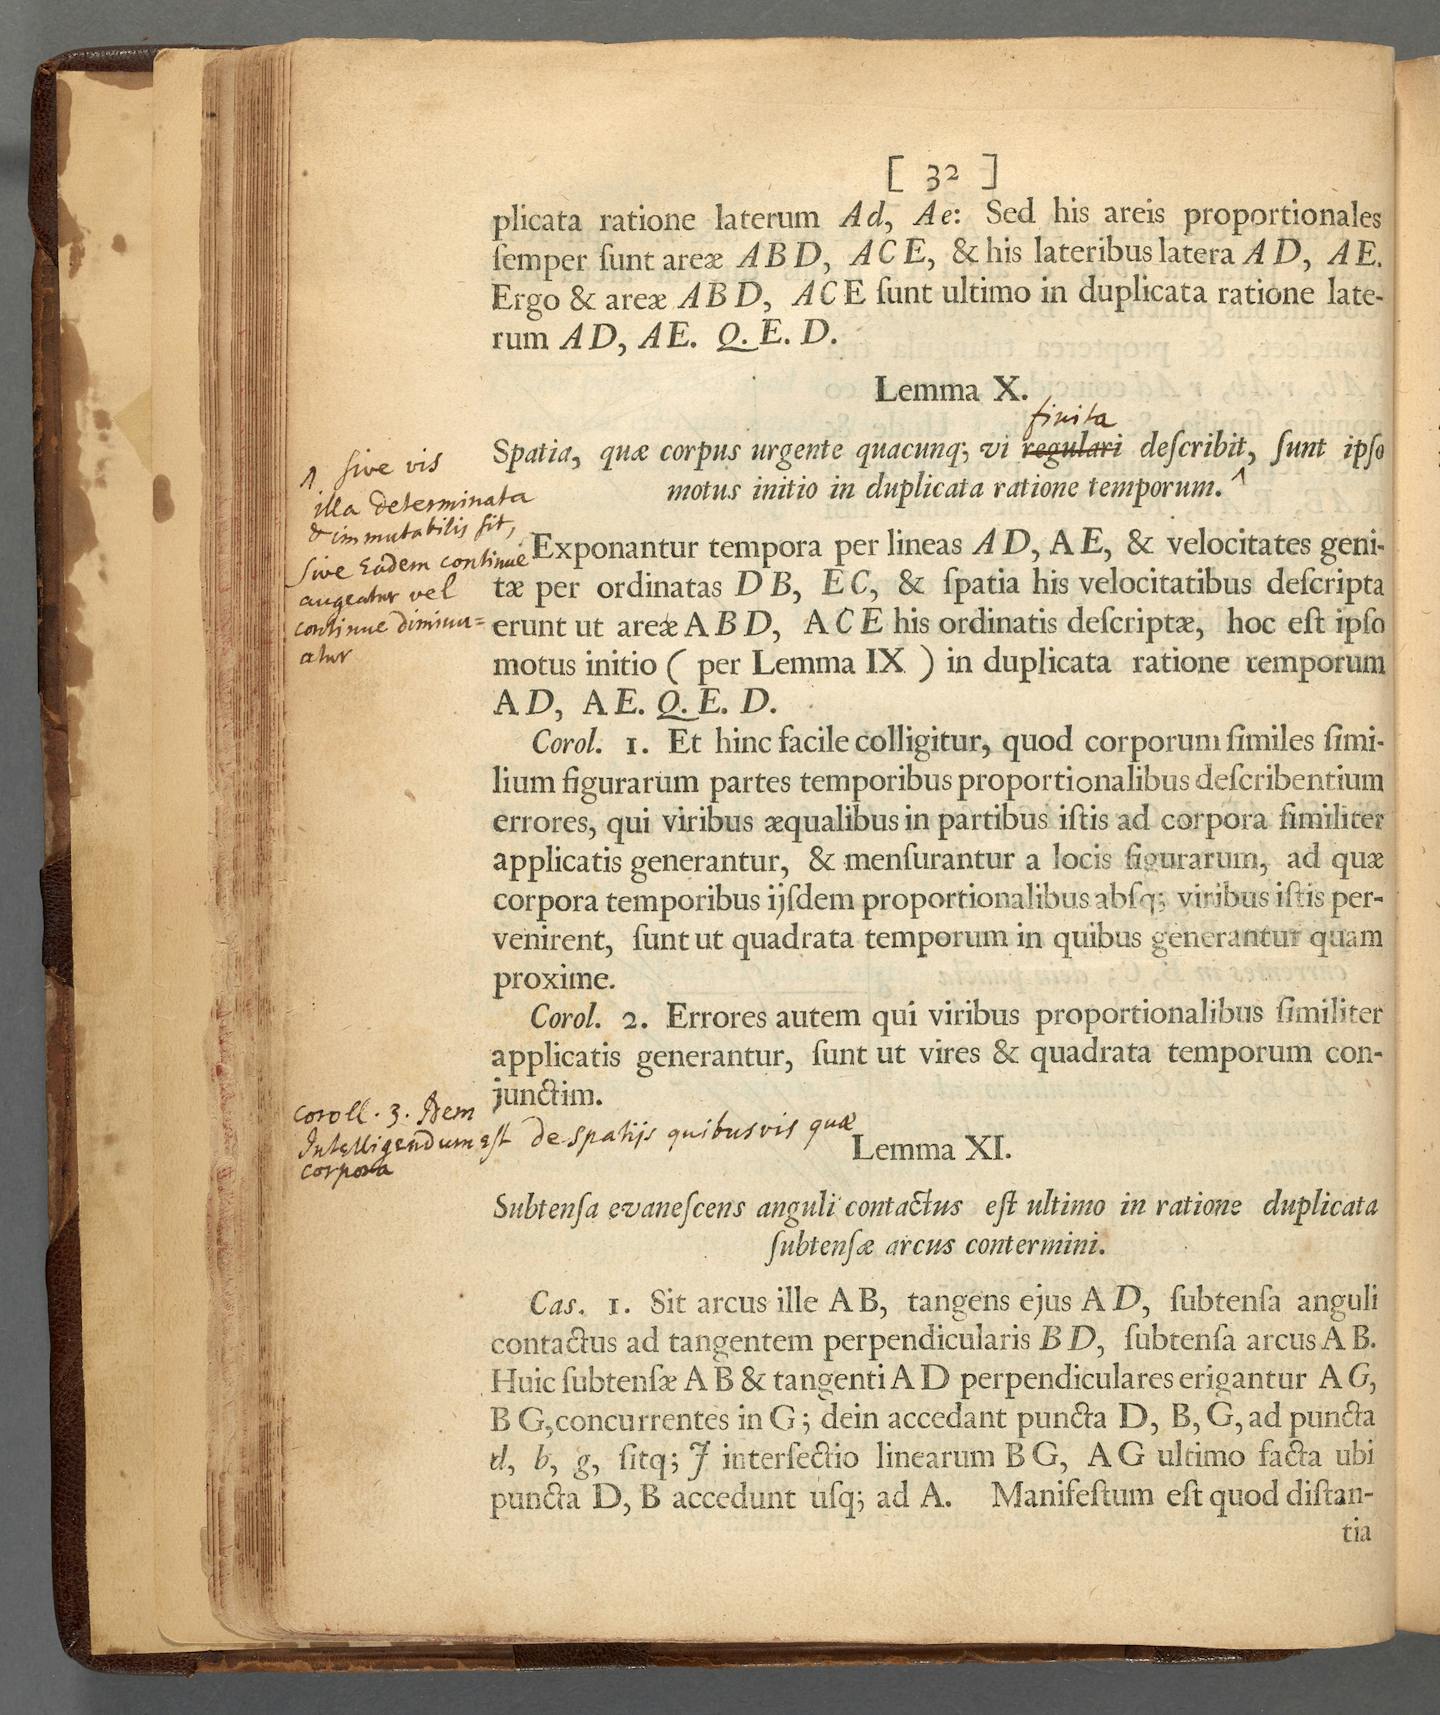 [ 32 ]
plicata ratione laterum Ad, Ae: Sed his areis proportionales
ſemper ſunt areæ ABD, ACE, & his lateribus latera AD, AE.
Ergo & areæ ABD, ACE ſunt ultimo in duplicata ratione late-
rum AD, AE. Q. E. D.
Lemma X.
finita
Spatia, quæ corpus urgente quacunq; vi regulari deſcribit, ſunt ipſo
motus initio in duplicata ratione temporum. ^
^ ſive vis
illa determinata
& immutabilis ſit,
ſive Eadem continue
augeatur vel
continue diminu=
atur
Exponantur tempora per lineas AD, AE, & velocitates geni-
tæ per ordinatas DB, EC, & ſpatia his velocitatibus deſcripta
erunt ut areæ ABD, ACE his ordinatis deſcriptæ, hoc eſt ipſo
motus initio ( per Lemma IX ) in duplicata ratione temporum
AD, AE. Q. E. D.
Corol. 1. Et hinc facile colligitur, quod corporum ſimiles ſimi-
lium figurarum partes temporibus proportionalibus deſcribentium
errores, qui viribus æqualibus in partibus iſtis ad corpora ſimiliter
applicatis generantur, & menſurantur a locis figurarum, ad quæ
corpora temporibus ijſdem proportionalibus abſq; viribus iſtis per-
venirent, ſunt ut quadrata temporum in quibus generantur quam
proxime.
Corol. 2. Errores autem qui viribus proportionalibus ſimiliter
applicatis generantur, ſunt ut vires & quadrata temporum con-
junctim.
Coroll. 3. Idem
Intelligendum Eſt de Spatijs quibusvis quæ
corpora
Lemma XI.
Subtenſa evaneſcens anguli contactus eſt ultimo in ratione duplicata
ſubtenſæ arcus contermini.
Cas. 1. Sit arcus ille AB, tangens ejus AD, ſubtenſa anguli
contactus ad tangentem perpendicularis BD, ſubtenſa arcus AB.
Huic ſubtenſæ AB & tangenti AD perpendiculares erigantur AG,
BG, concurrentes in G; dein accedant puncta D, B, G, ad puncta
d, b, g, ſitq; J interſectio linearum BG, AG ultimo facta ubi
puncta D, B accedunt uſq; ad A. Manifeſtum eſt quod diſtan-
tia